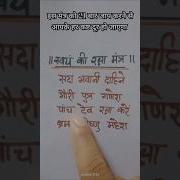 इस मंत्र को 21 बार जाप करने से
आपके हर कष्ट दूर हो जाएगा
॥ स्वयं की रक्षा मंत्र ॥
सदा भवानी दाहिने
गौरी पुत्र गणेश
पांच देव रक्षा करें
ब्रह्मा विष्णु महेश